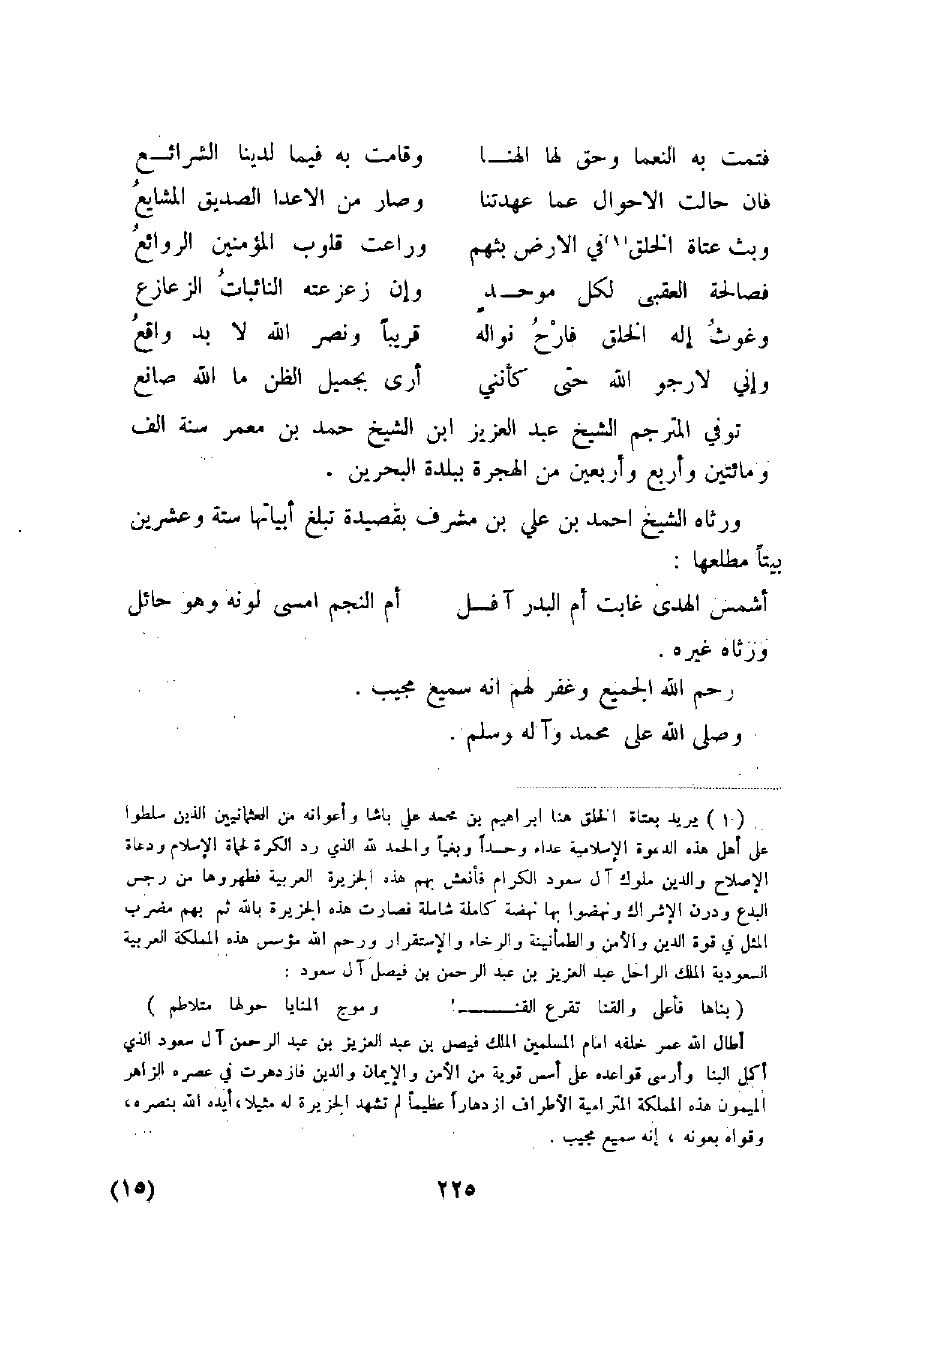 فتمت به النعما وحق لها الهنـــا وقامت به فيما لدينا الشرائــع
فان حالت الاحوال عما عهدتنا وصار من الاعدا الصديق المشايعُ
وبث عتاة الخلق(١)في الارض بثهم وراعت قلوب المؤمنين الروائعُ
فصالحة العقبى لكل موحــدٍ وإن زعزعته النائباتُ الزعازع
وغوثُ إله الخلق فارْجُ نواله قريباً ونصر الله لا بد واقعُ
وإني لارجو الله حتى كأنني أرى بجميل الظن ما الله صانع
توفي المترجم الشيخ عبد العزيز ابن الشيخ حمد بن معمر سنة الف
ومائتين وأربع وأربعين من الهجرة ببلدة البحرين .
ورثاه الشيخ احمد بن علي بن مشرف بقصيدة تبلغ أبياتها ستة وعشرين
بيتاً مطلعها :
أشمس الهدى غابت أم البدر آفــل أم النجم امسى لونه وهو حائل
ورثاه غيره .
رحم الله الجميع وغفر لهم انه سميع مجيب .
وصلى الله على محمد وآله وسلم .
(١) يريد بعتاة الخلق هنا ابراهيم بن محمد علي باشا وأعوانه من العثمانيين الذين سلطوا
على أهل هذه الدعوة الإسلامية عداء وحسداً وبغياً والحمد لله الذي رد الكرة لحماة الإسلام ودعاة
الإصلاح والدين ملوك آل سعود الكرام فأنعش بهم هذه الجزيرة العربية فطهروها من رجس
البدع ودرن الإشراك ونهضوا بها نهضة كاملة شاملة فصارت هذه الجزيرة بالله ثم بهم مضرب
المثل في قوة الدين والأمن والطمأنينة والرخاء والإستقرار ورحم الله مؤسس هذه المملكة العربية
السعودية الملك الراحل عبد العزيز بن عبد الرحمن بن فيصل آل سعود :
( بناها فأعلى والقنا تقرع القنـــــا وموج المنايا حولها متلاطم )
أطال الله عمر خلفه امام المسلمين الملك فيصل بن عبد العزيز بن عبد الرحمن آل سعود الذي
أكمل البنا وأرسى قواعده على أسس قوية من الأمن والإيمان والدين فازدهرت في عصره الزاهر
الميمون هذه المملكة المترامية الأطراف ازدهاراً عظيماً لم تشهد الجزيرة له مثيلا، أيده الله بنصره،
وقواه بعونه ، إنه سميع مجيب .
٢٢٥ (١٥)